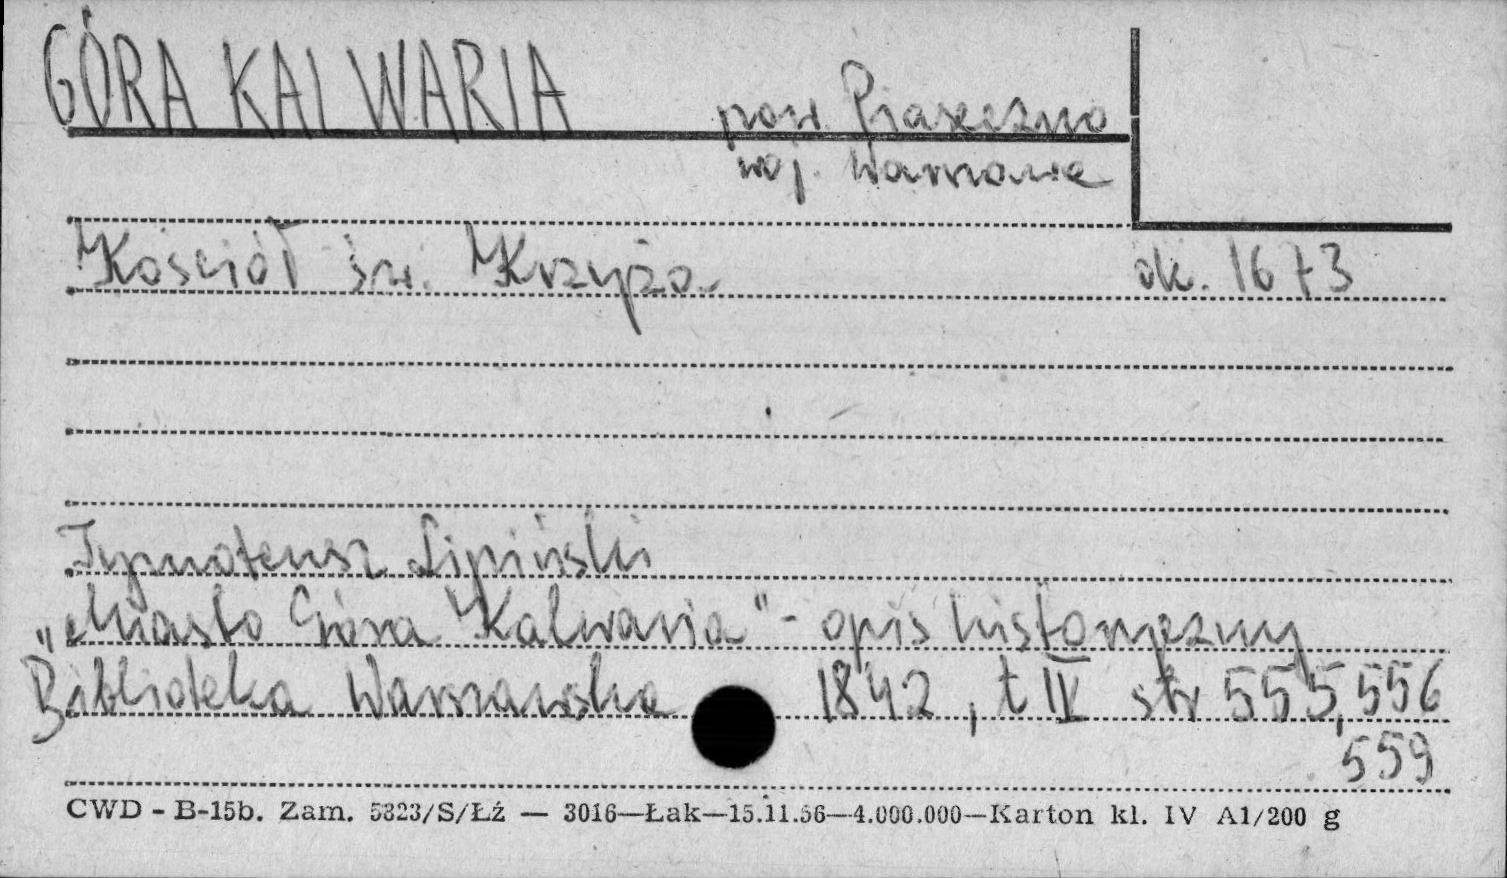 GÓRA KALWARIA pow. Piaseczno
woj. Warszawa
Kościół św. Krzyża ok. 1673
Tymoteusz Lipiński
„Miasto Góra Kalwaria" - opis historyczny
Biblioteka Warszawska 1842, t IV str 555, 556
559
CWD - B-15b. Zam. 5323/S/Łź — 3016—Łak—15.11.56—4.000.000—Karton kl. IV A1/200 g